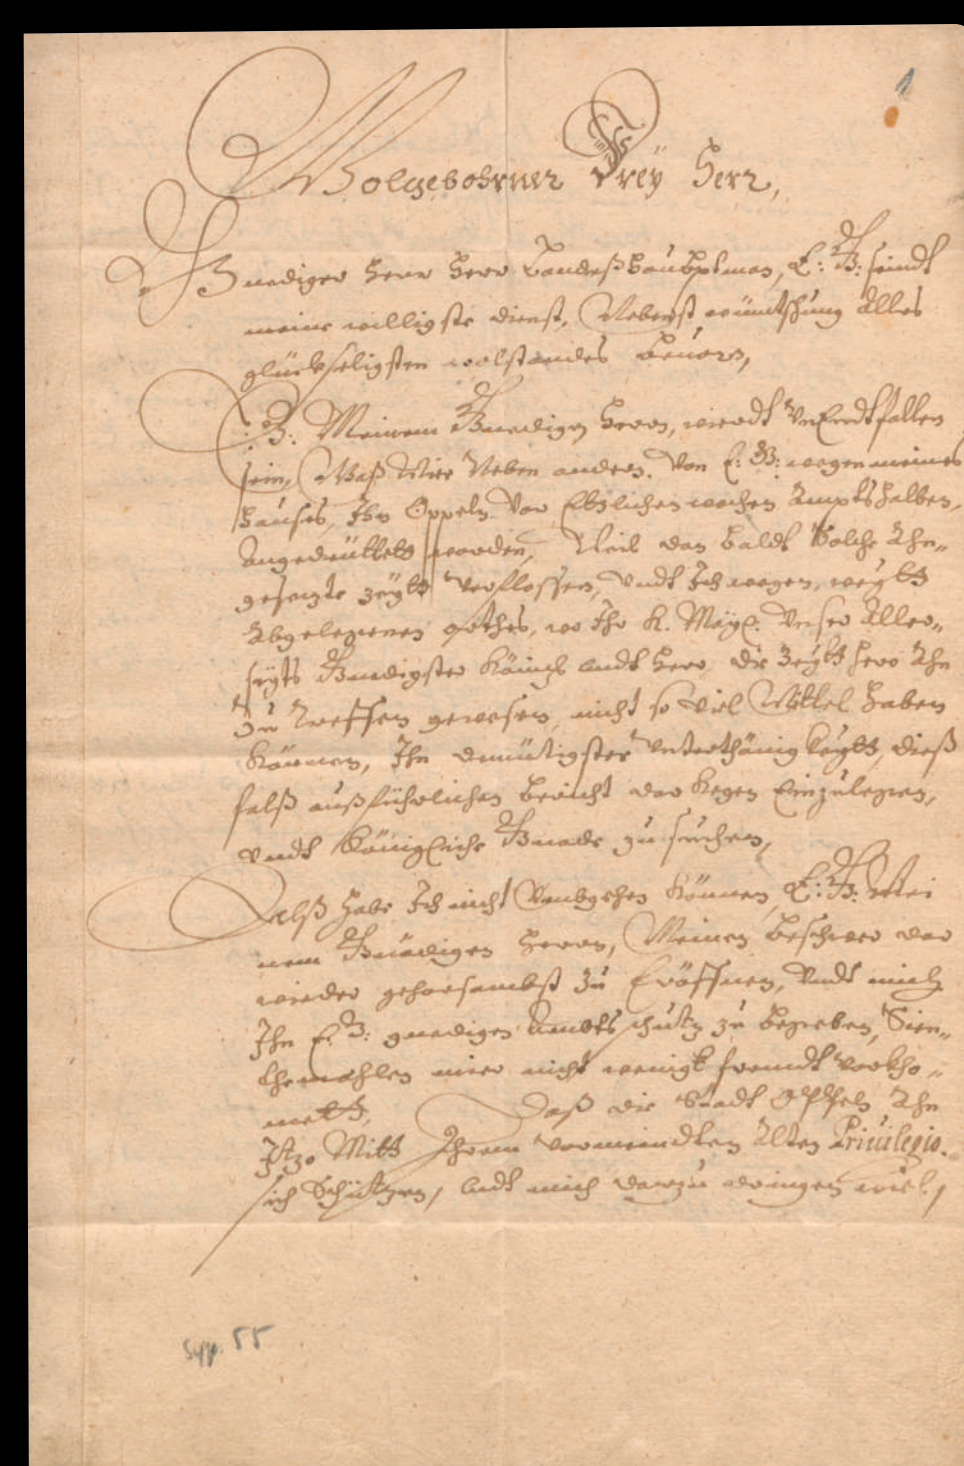 1
Wolgebohrner Freÿ Herr,
Gnediger Herr Herr Landeßhaubtman, E: G: seindt
meine willigste dienst, Nebenst wüntschung Alles
glückseligsten wolstandes beuorn,
E: G: Meinem Gnedigen Herrn, wierdt UnEndtfallen
sein, Waß Mier Neben andern, Von E: G: wegen meines
Hauses, Inn Oppeln Vor Etzlichen wochen Ampts halben,
Angedeüttet worden, Weil dan baldt Solche Ahn-
gesezte zeÿtt Verflossen, Undt Ich wegen, weÿtt
Abgelegenen orthes, wo Ihr K. Maÿt: Unser Aller-
seÿts Gnedigster König undt Herr, die Zeÿtt hero Ahn
Zu Treffen gewesen, nicht so Viel Mittel haben
können, Inn demütigster Unterthänigkeÿtt, dieß
falß außführlichen bericht dar kegen Einzulegen,
Undt Königliche Gnade zu suchen,
Alß habe Ich nicht Vmbgehen können, E: G: Mei
nem Gnädigen Herrn, Meinen beschwer dar
wieder gehorsambst zu Eröffnen, Undt mich
Inn E. G: gnedigen Ambts schutz zu begeben, Sien-
themahlen mier nicht wenigk frembdt vorkho-
mett, Daß die Stadt Oppeln Ahn
Itzo Mitt Ihrem vermeindten Alten Priuilegio.
sich Schützen, undt mich darzu dringen wiel,
Syg. 55